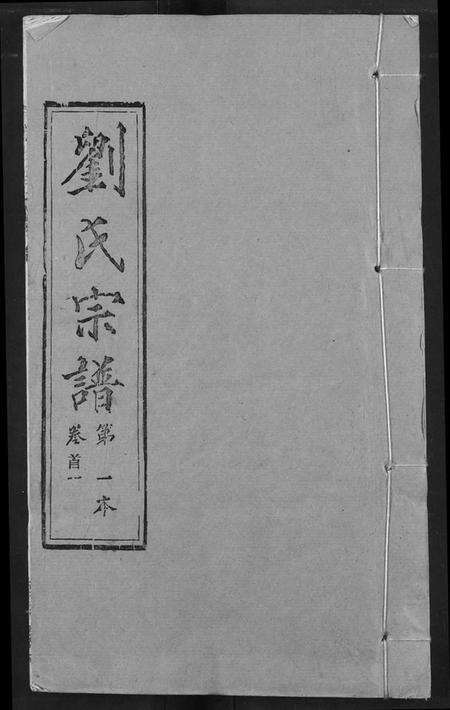 劉氏宗譜
第一本
卷首一